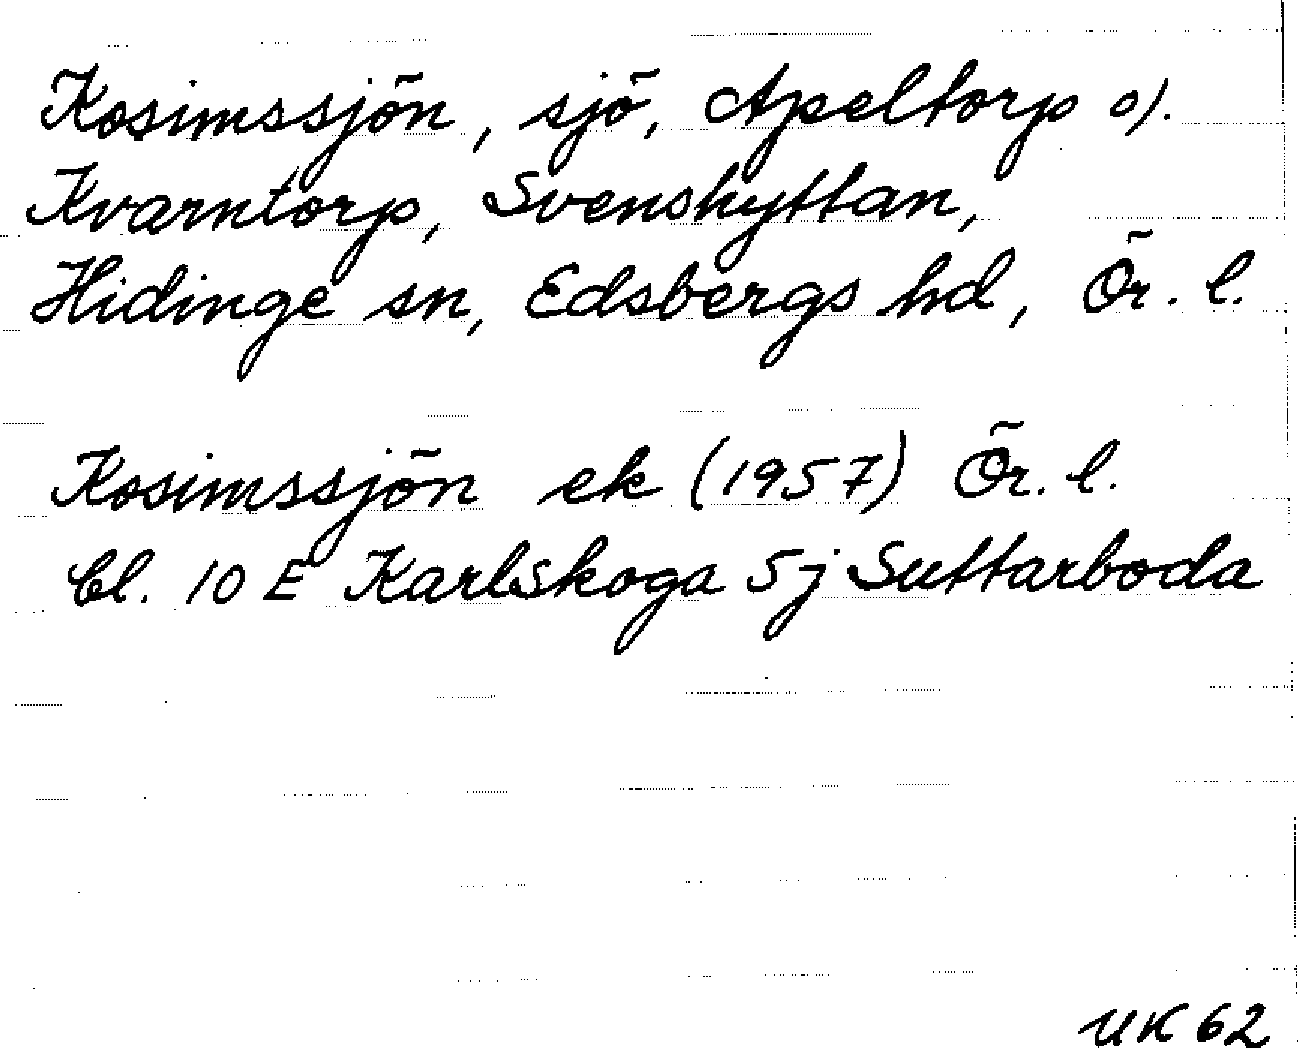 Kosimssjön, sjö, Apeltorp o).
Kvarntorp, Svenshyttan,
Hidinge sn, Edsbergs hd, Ör. l.
Kosimssjön ek (1957) Ör. l.
Bl. 10 E Karlskoga 5j Suttarboda
UK 62